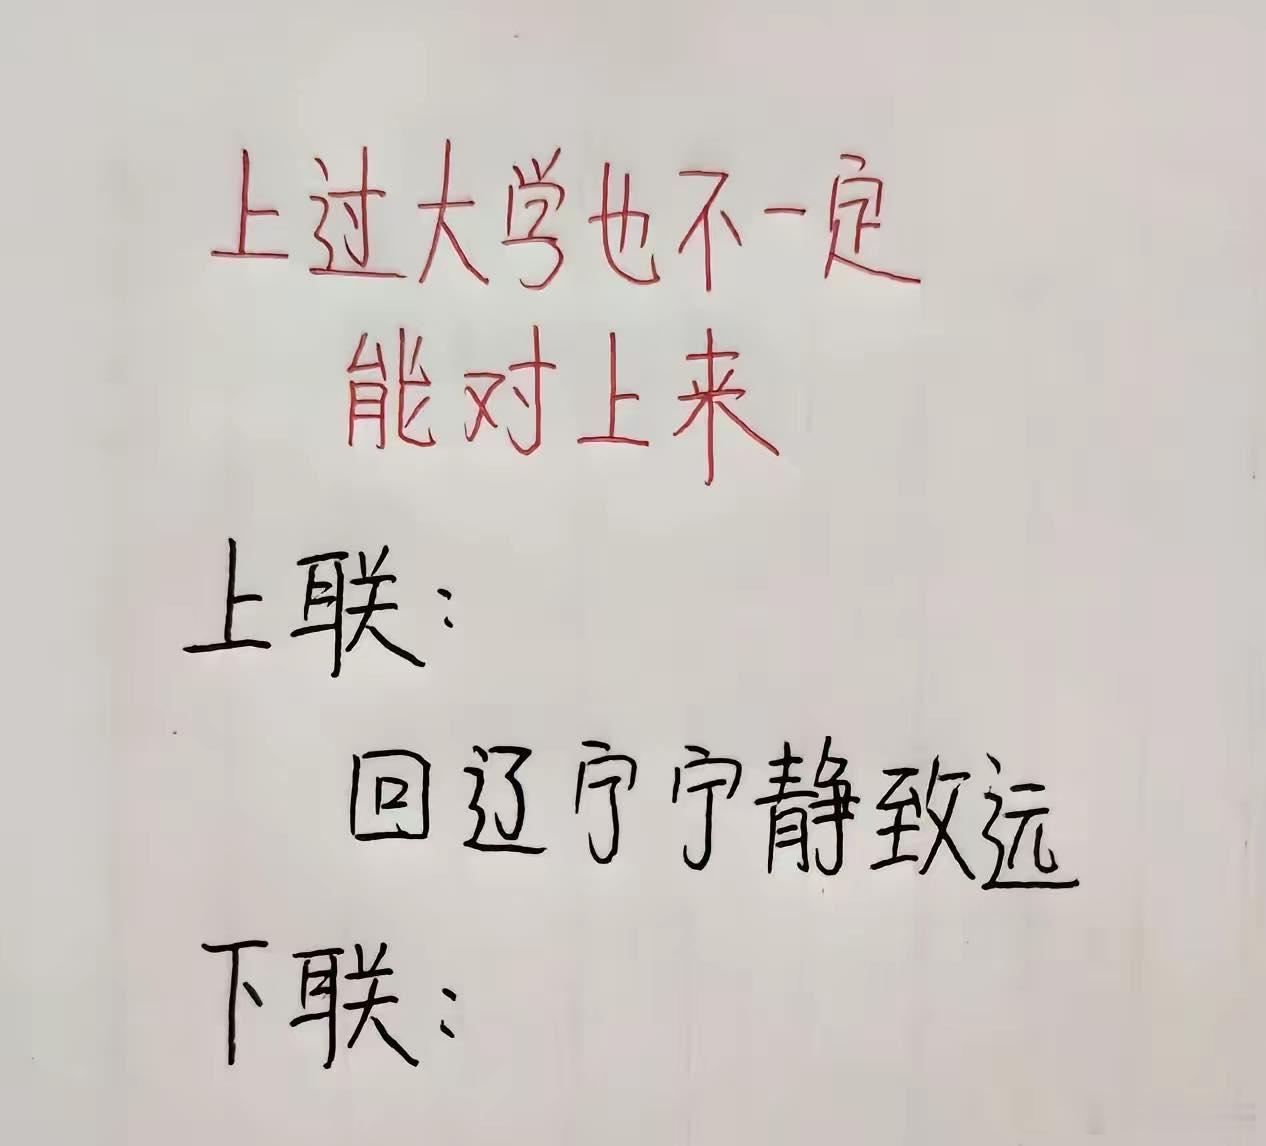 上过大学也不一定
能对上来
上联：
回辽宁宁静致远
下联：